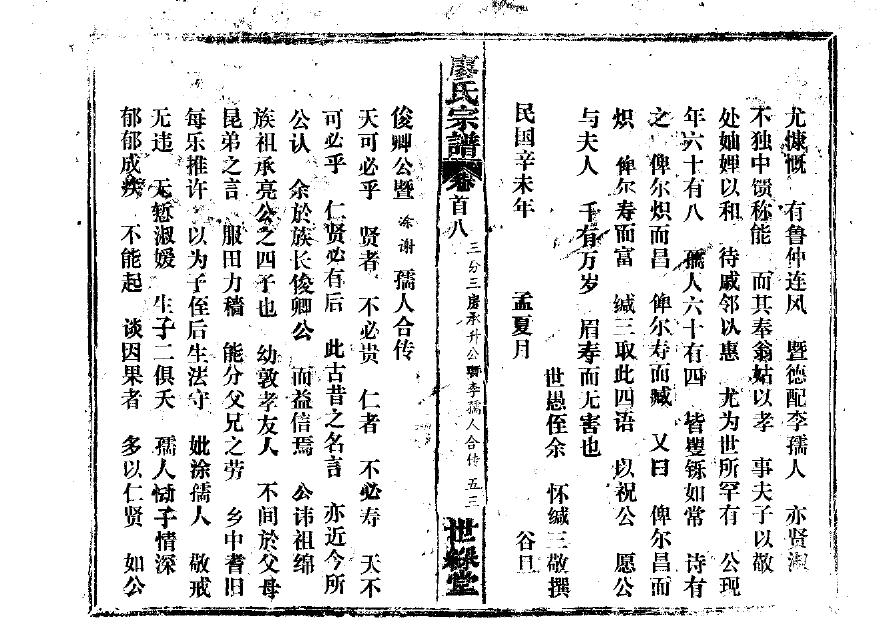 尤慷慨 有鲁仲连风 暨德配李孺人 亦贤淑
不独中馈称能 而其奉翁姑以孝 事夫子以敬
处妯娌以和 待戚邻以惠 尤为世所罕有 公现
年六十有八 孺人六十有四 皆矍铄如常 诗有
之 俾尔炽而昌 俾尔寿而臧 又曰 俾尔昌而
炽 俾尔寿而富 缄三取此四语 以祝公 愿公
与夫人 千有万岁 眉寿而无害也
世愚侄余 怀缄三敬撰
民国辛未年 孟夏月 谷旦
廖氏宗譜 卷首八 三分三房承升公暨李孺人合传 五三 世綵堂
俊卿公暨涂谢孺人合传
天可必乎 贤者 不必贵 仁者 不必寿 天不
可必乎 仁贤必有后 此古昔之名言 亦近今所
公认 余於族长俊卿公 而益信焉 公讳祖绵
族祖承亮公之四子也 幼敦孝友人 不间於父母
昆弟之言 服田力穑 能分父兄之劳 乡中耆旧
每乐推许 以为子侄后生法守 妣涂孺人 敬戒
无违 无惭淑媛 生子二俱夭 孺人恸子情深
郁郁成疾 不能起 谈因果者 多以仁贤 如公